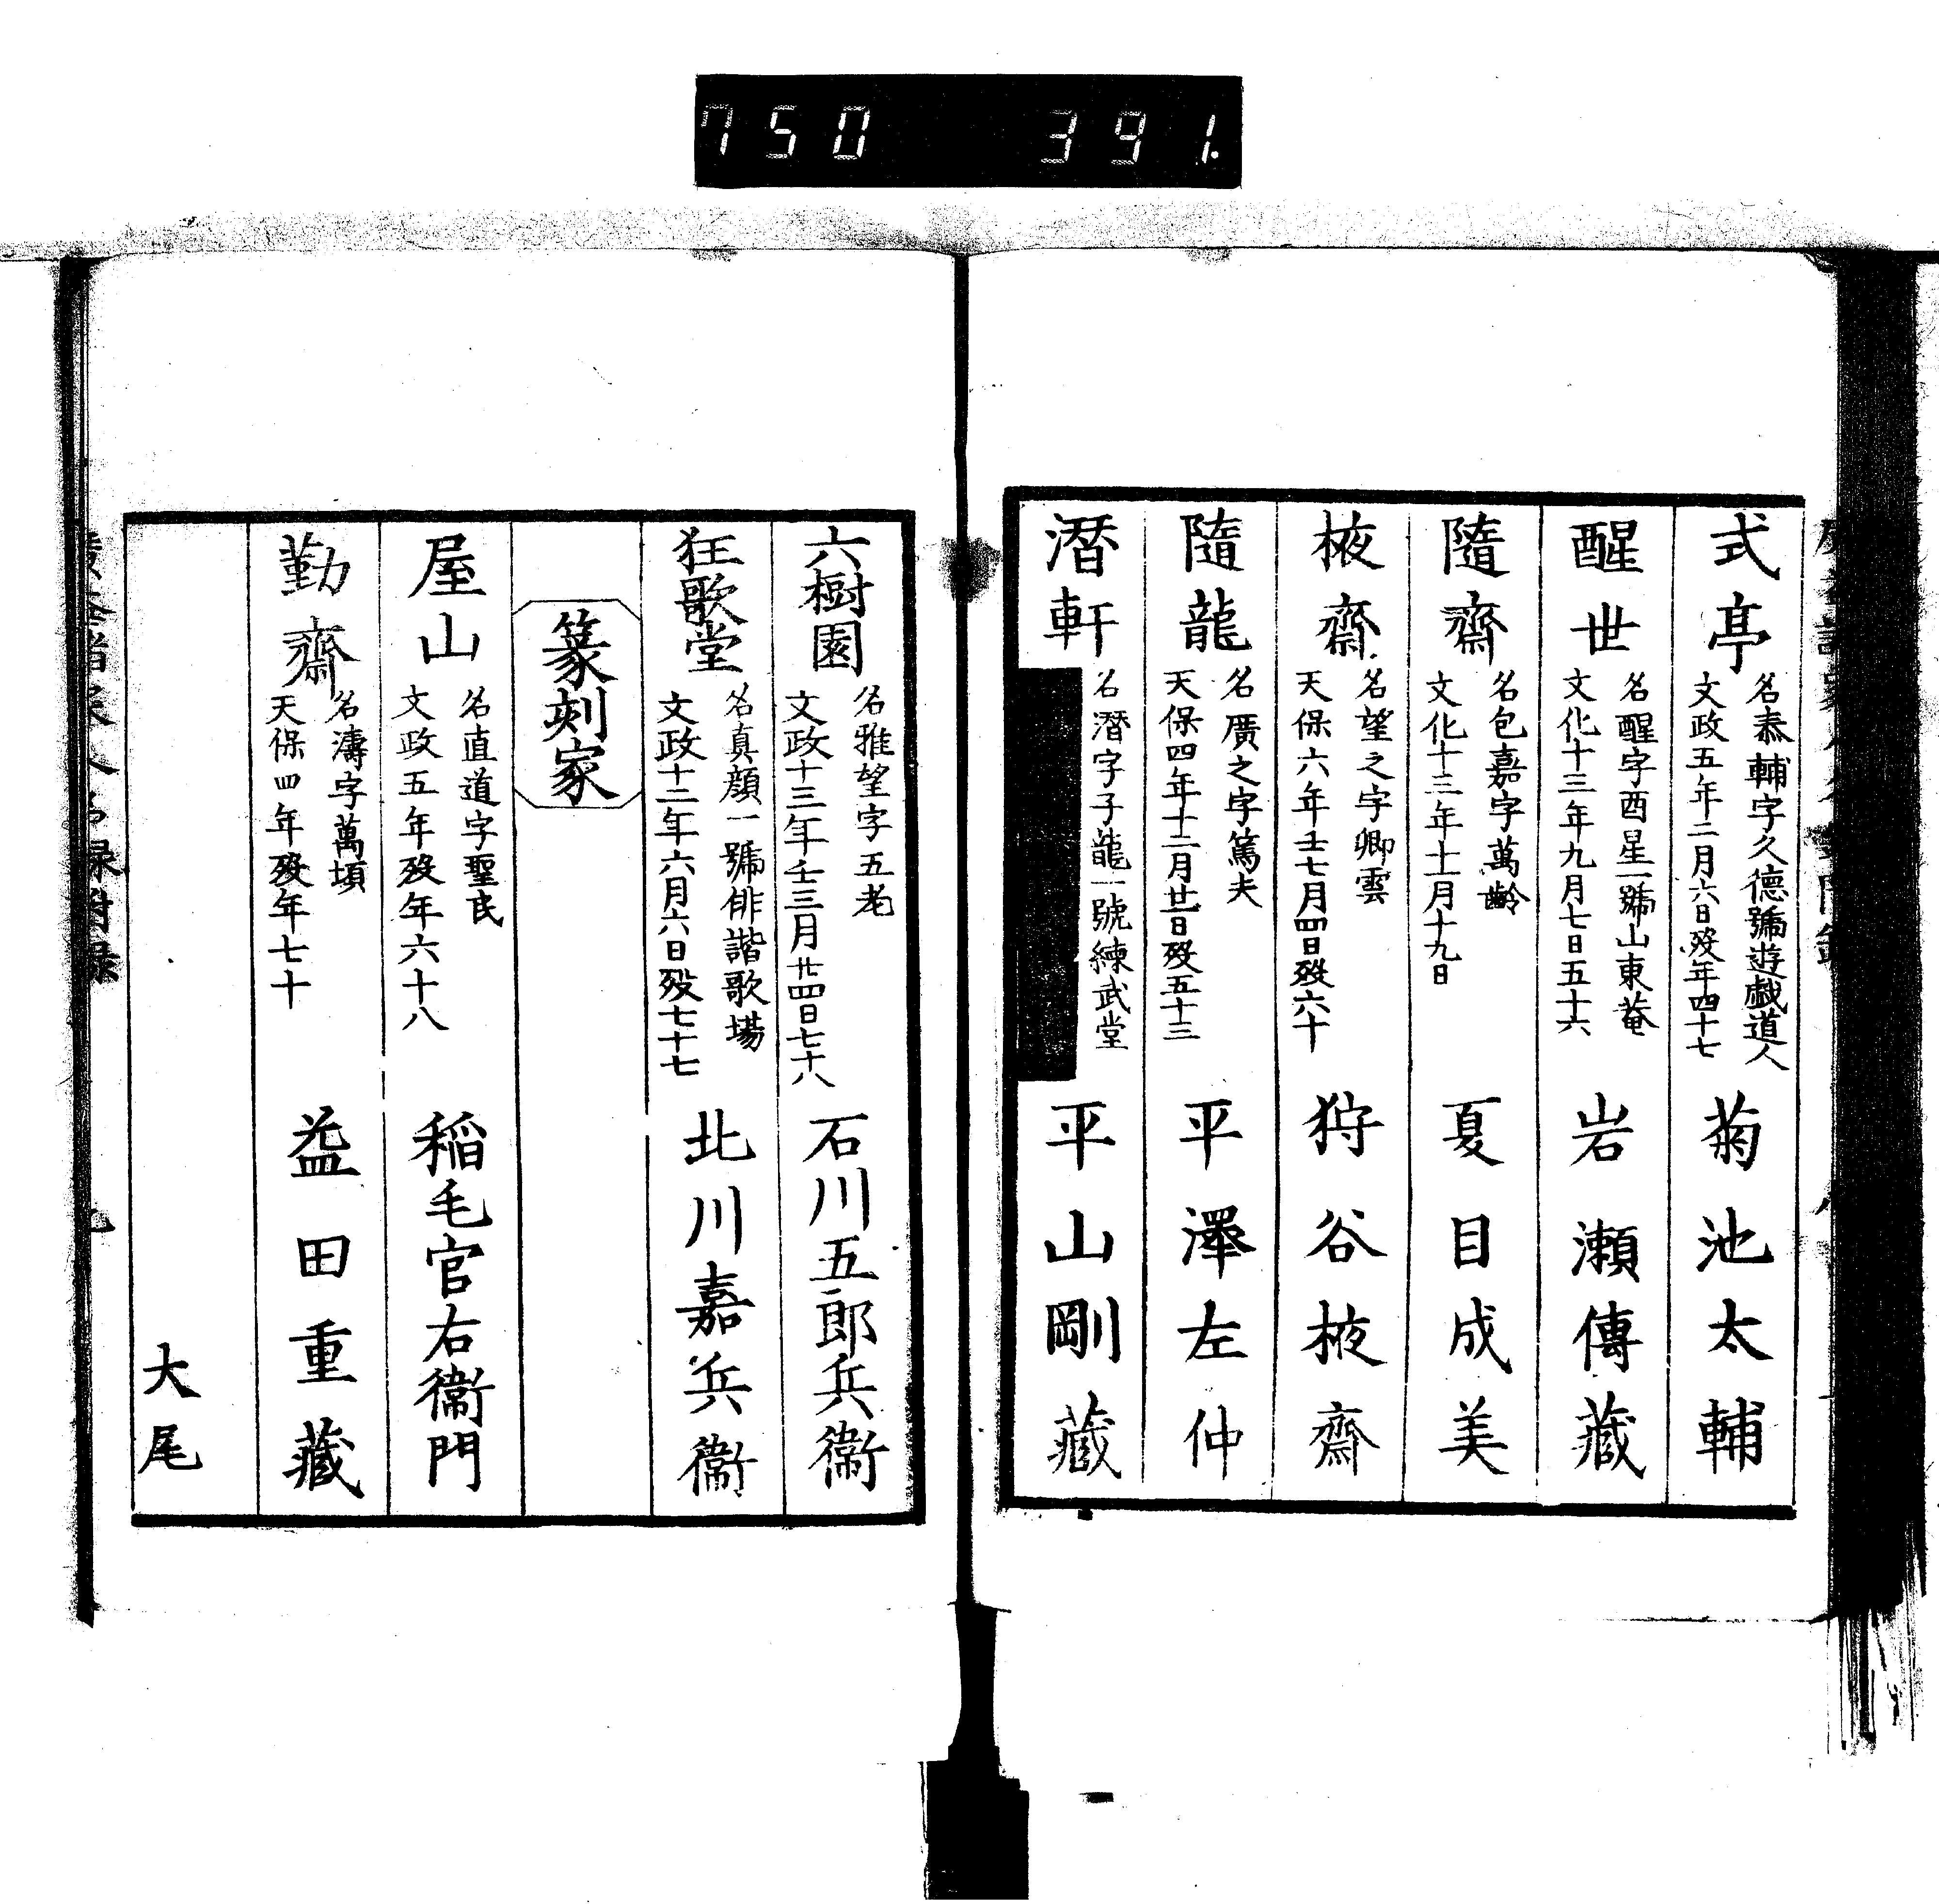 750 391.
式亭
名泰輔字久德號遊戯道人
文政五年二月六日歿年四十七
菊池太輔
醒世
名醒字酉星一號山東菴
文化十三年九月七日五十六
岩瀬傳藏
隨齋
名包嘉字萬齡
文化十三年十一月十九日
夏目成美
棭齋
名望之字卿雲
天保六年壬七月四日歿六十
狩谷棭齋
隨龍
名廣之字篤夫
天保四年十二月廿一日歿五十三
平澤左仲
潛軒
名潛字子龍一號練武堂
平山剛藏
六樹園
名雅望字五老
文政十三年壬三月廿四日七十八
石川五郎兵衞
狂歌堂
名真顔一號俳諧歌場
文政十二年六月六日歿七十七
北川嘉兵衞
篆刻家
屋山
名直道字聖民
文政五年歿年六十八
稲毛官右衞門
勤齋
名濤字萬頃
天保四年歿年七十
益田重藏
大尾